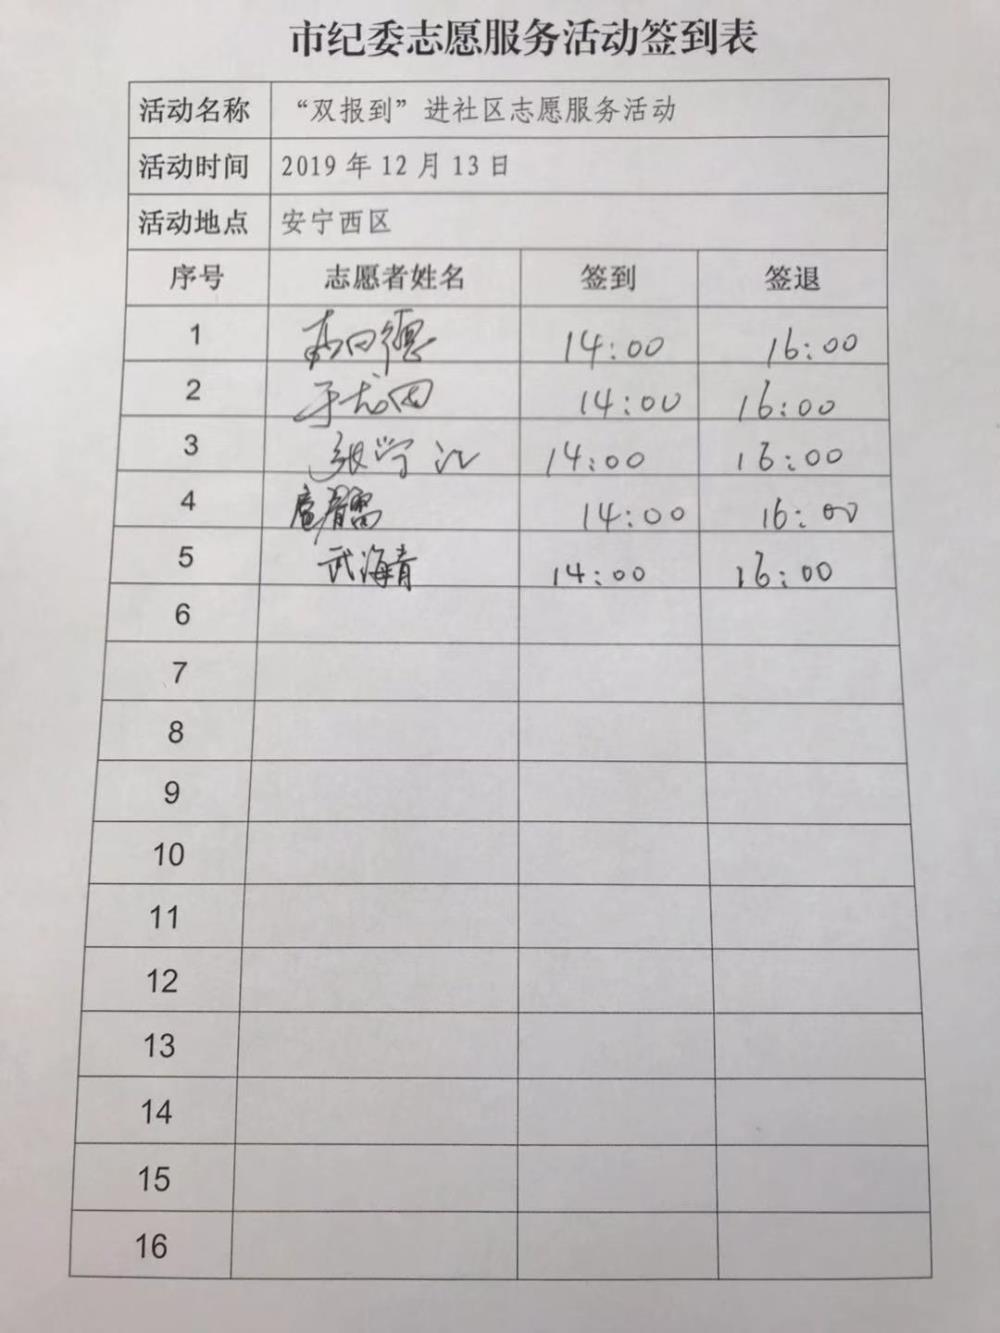 市纪委志愿服务活动签到表
活动名称 “双报到”进社区志愿服务活动
活动时间 2019 年 12 月 13 日
活动地点 安宁西区
序号 志愿者姓名 签到 签退
1 14:00 16:00
2 14:00 16:00
3 张学江 14:00 16:00
4 14:00 16:00
5 武海青 14:00 16:00
6
7
8
9
10
11
12
13
14
15
16